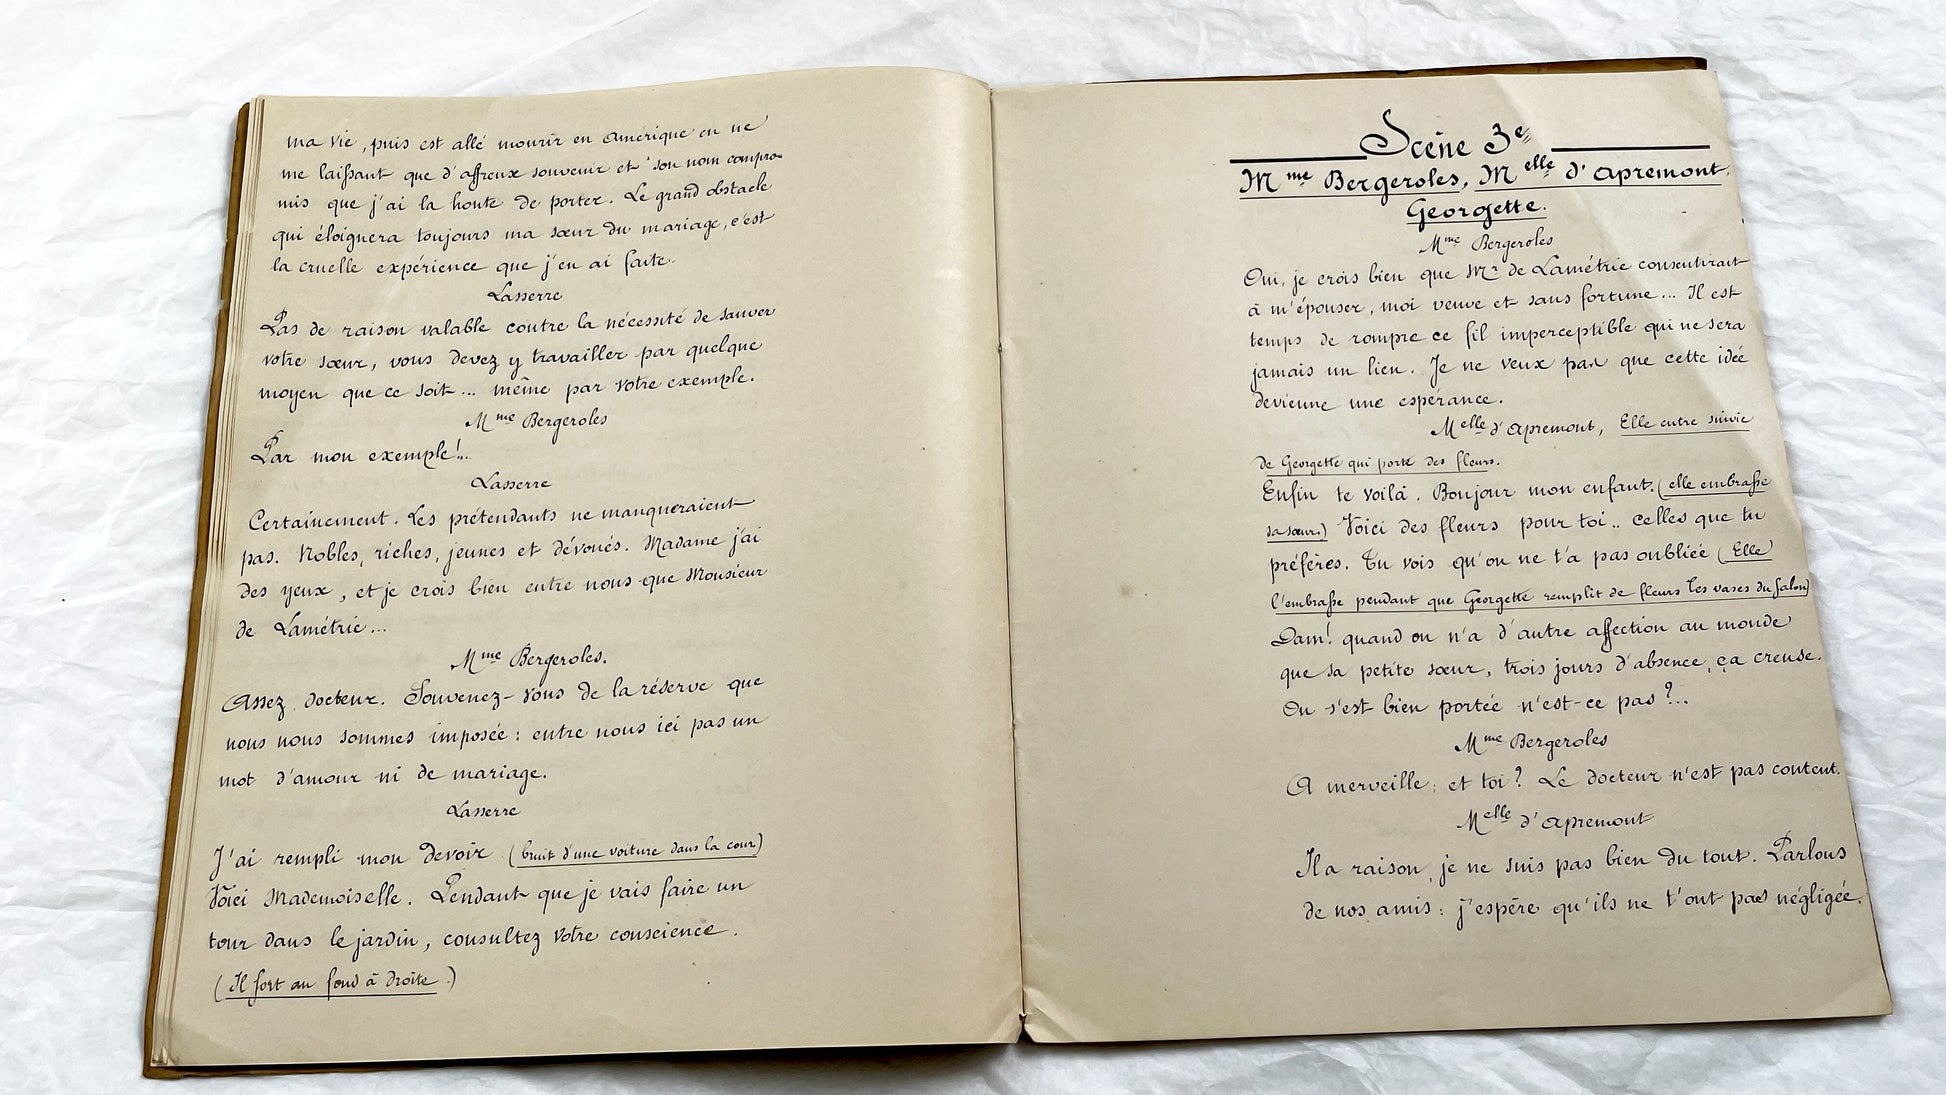 ma vie, puis est allé mourir en Amérique en ne
me laissant que d'affreux souvenir et son nom compro-
mis que j'ai la honte de porter. Le grand obstacle
qui éloignera toujours ma sœur du mariage, c'est
la cruelle expérience que j'en ai faite.
Lasserre
Pas de raison valable contre la nécessité de sauver
votre sœur, vous devez y travailler par quelque
moyen que ce soit... même par votre exemple.
Mme Bergeroles
Par mon exemple!..
Lasserre
Certainement. Les prétendants ne manqueraient
pas. Nobles, riches, jeunes et dévoués. Madame j'ai
des yeux, et je crois bien entre nous que Monsieur
de Lamétrie...
Mme Bergeroles.
Assez docteur. Souvenez-vous de la réserve que
nous nous sommes imposée : entre nous ici pas un
mot d'amour ni de mariage.
Lasserre
J'ai rempli mon devoir (bruit d'une voiture dans la cour)
Voici Mademoiselle. Pendant que je vais faire un
tour dans le jardin, consultez votre conscience.
(Il sort au fond à droite.)
Scène 3e
Mme Bergeroles, Melle d'Apremont,
Georgette.
Mme Bergeroles
Oui, je crois bien que Mr de Lamétrie consentirait
à m'épouser, moi veuve et sans fortune... Il est
temps de rompre ce fil imperceptible qui ne sera
jamais un lien. Je ne veux pas que cette idée
devienne une espérance.
Melle d'Apremont, Elle entre suivie
de Georgette qui porte des fleurs.
Enfin te voilà. Bonjour mon enfant. (elle embrasse
sa sœur.) Voici des fleurs pour toi.. celles que tu
préfères. Tu vois qu'on ne t'a pas oubliée (Elle
l'embrasse pendant que Georgette remplit de fleurs les vases du salon)
Dam! quand on n'a d'autre affection au monde
que sa petite sœur, trois jours d'absence, ça creuse.
On s'est bien portée n'est-ce pas?...
Mme Bergeroles
A merveille; et toi? Le docteur n'est pas content.
Melle d'Apremont
Il a raison, je ne suis pas bien du tout. Parlons
de nos amis : j'espère qu'ils ne t'ont pas négligée.